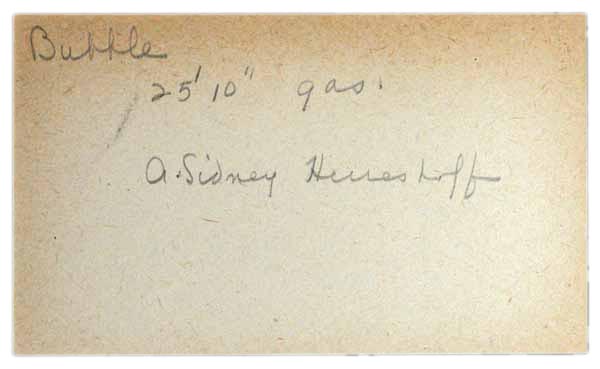 Bubble
25'10" gas.
A. Sidney Herreshoff